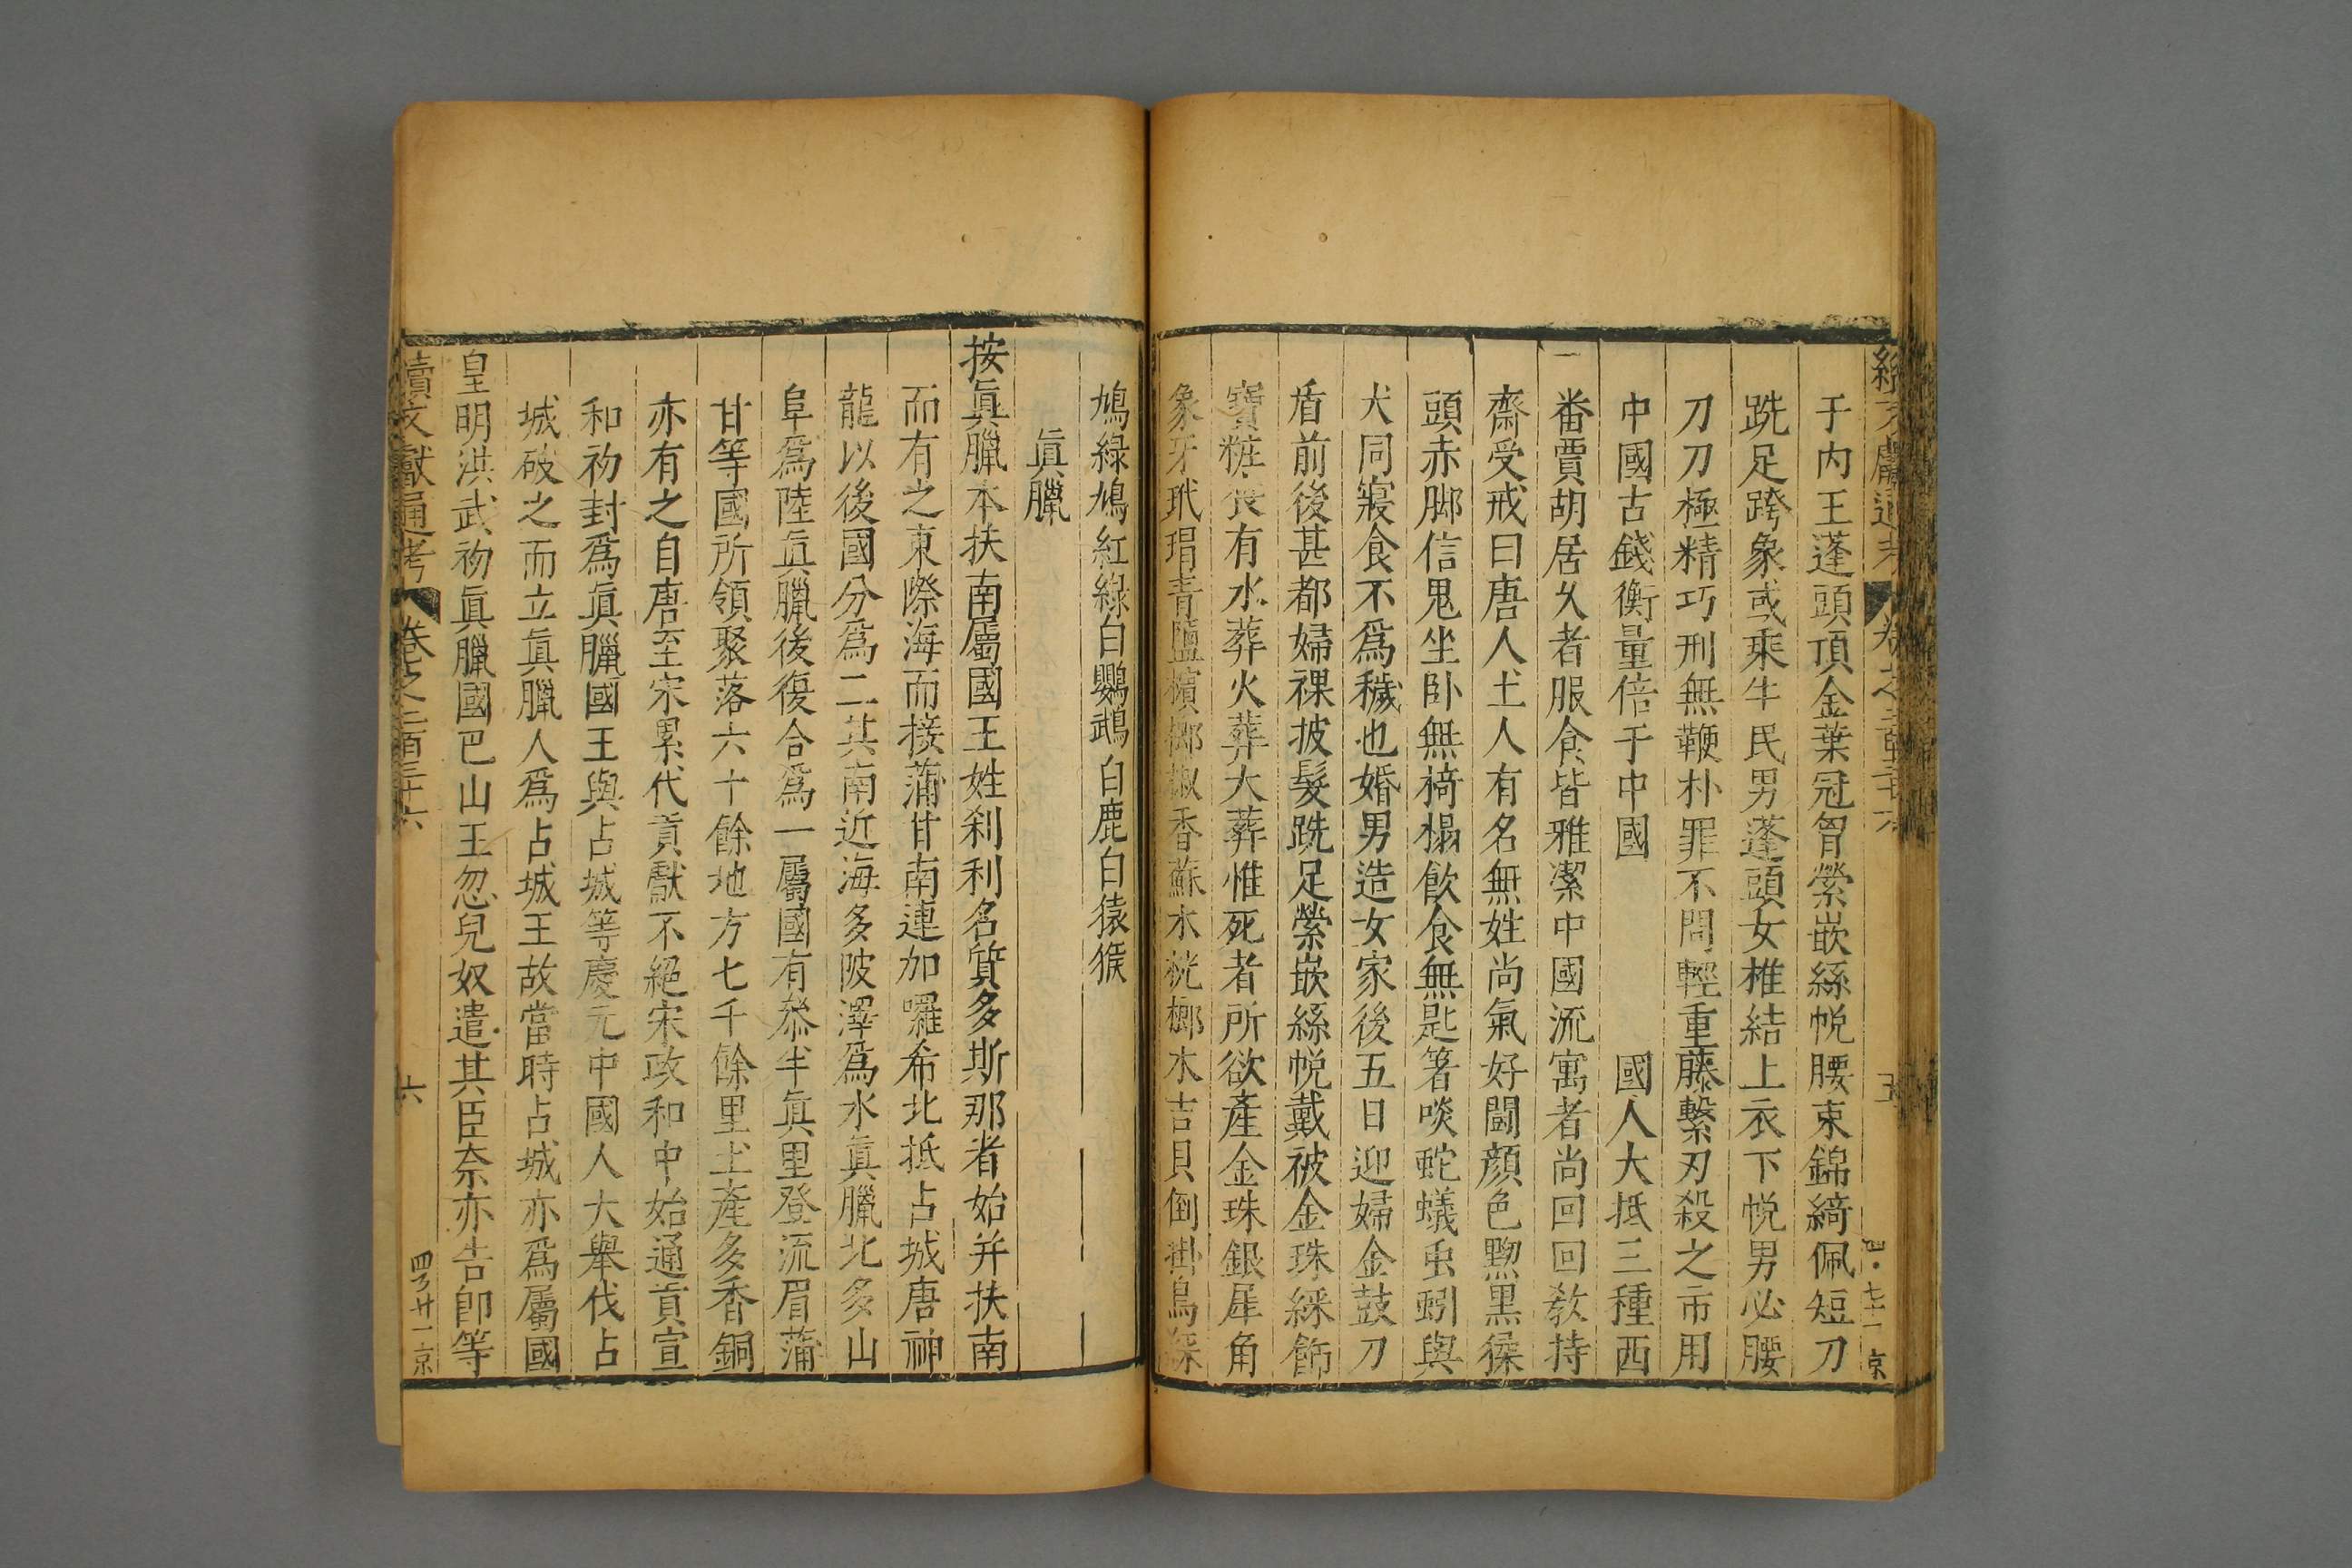 于内王蓬頭頂金葉冠胷縈嵌絲帨腰束錦綺佩短刀
跣足跨象或乘牛民男蓬頭女椎結上衣下帨男必腰
刀刀極精巧刑無鞭朴罪不問輕重藤繫刃殺之市用
中國古錢衡量倍于中國 國人大抵三種西
番賈胡居乆者服食皆雅潔中國流寓者尚回回敎持
齋受戒曰唐人土人有名無姓尚氣好鬪顔色黝黑猱
頭赤脚信鬼坐卧無椅榻飲食無匙箸啖蛇蟻虫蚓與
犬同寢食不爲穢也婚男造女家後五日迎婦金鼓刀
盾前後甚都婦祼披髮跣足縈嵌絲帨戴被金珠綵飾
寶粧喪有水葬火葬犬葬惟死者所欲產金珠銀犀角
象牙玳瑁青鹽檳榔椒香蘇木桄榔木吉貝倒掛鳥綵
鳩綠鳩紅綠白鸚鵡白鹿白猿猴
眞臘
按眞臘本扶南屬國王姓利利名質多斯那者始幷扶南
而有之東際海而接蒲甘南連加囉希北抵占城唐神
龍以後國分爲二其南近海多陂澤爲水眞臘北多山
阜爲陸眞臘後復合爲一屬國有叅半眞里登流眉蒲
甘等國所領聚落六十餘地方七千餘里土產多香銅
亦有之自唐至宋累代貢獻不絕宋政和中始通貢宣
和初封爲眞臘國王與占城等慶元中國人大舉伐占
城破之而立眞臘人爲占城王故當時占城亦爲屬國
皇明洪武初眞臘國巴山王忽兒奴遣其臣奈亦吿郎等
續文獻通考 卷之二百三十六 六 四乄廿一 京